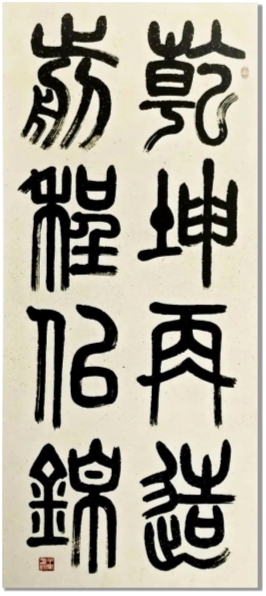 乾坤再造
前程似錦